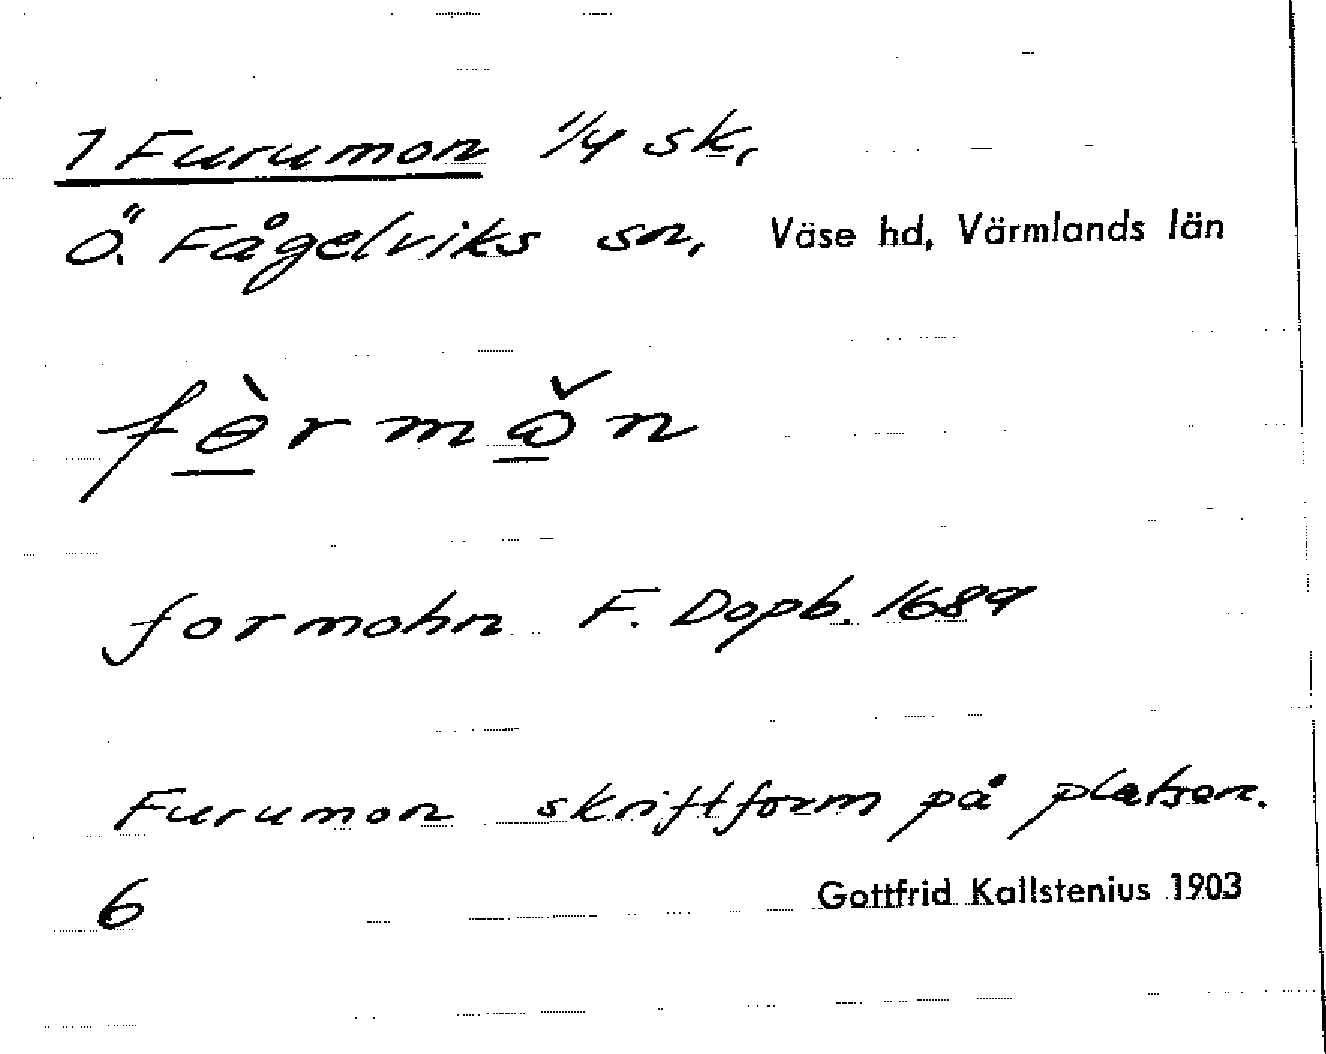 1 Furumon 1/4 sk,
Ö. Fågelviks sn, Väse hd, Värmlands län
fɵ̀rmɷ̌n
formohn F. Dopb. 1689
Furumon skriftform på platsen.
6 Gottfrid Kallstenius 1903